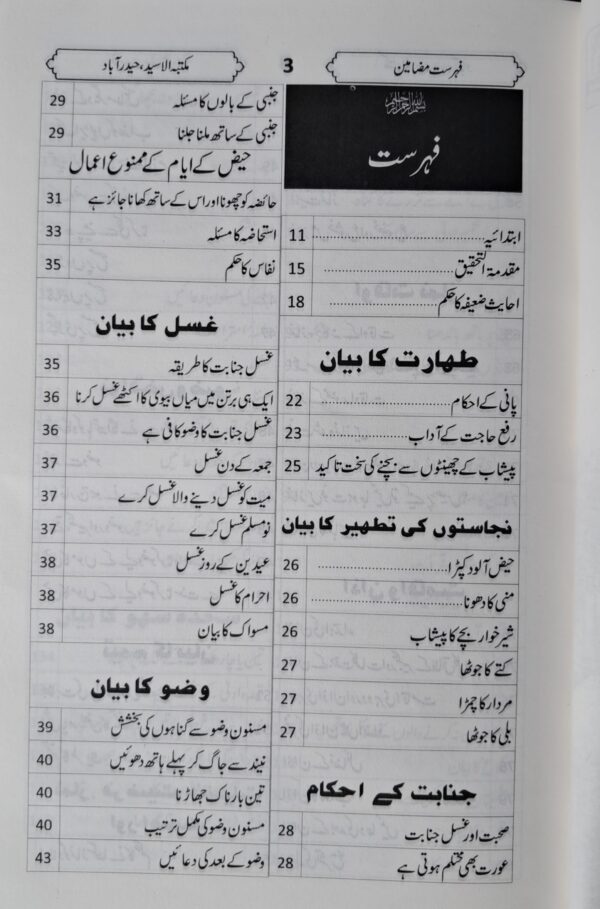 فہرست مضامین
3
مکتبۃ الاسید، حیدرآباد
بسم اللہ الرحمن الرحیم
فہرست
ابتدائیہ 11
مقدمۃ التحقیق 15
احادیث ضعیفہ کا حکم 18
طہارت کا بیان
پانی کے احکام 22
رفع حاجت کے آداب 23
پیشاب کے چھینٹوں سے بچنے کی سخت تاکید 25
نجاستوں کی تطہیر کا بیان
حیض آلود کپڑا 26
منی کا دھونا 26
شیر خوار بچے کا پیشاب 26
کتے کا جوٹھا 27
مردار کا چمڑا 27
بلی کا جوٹھا 27
جنابت کے احکام
صحبت اور غسل جنابت 28
عورت بھی محتلم ہوتی ہے 28
جنبی کے بالوں کا مسئلہ 29
جنبی کے ساتھ ملنا جلنا 29
حیض کے ایام کے ممنوع اعمال
حائضہ کو چھونا اور اس کے ساتھ کھانا جائز ہے 31
استحاضہ کا مسئلہ 33
نفاس کا حکم 35
غسل کا بیان
غسل جنابت کا طریقہ 35
ایک ہی برتن میں میاں بیوی کا اکٹھے غسل کرنا 36
غسل جنابت کا وضو کافی ہے 36
جمعہ کے دن غسل 37
میت کو غسل دینے والا غسل کرے 37
نو مسلم غسل کرے 37
عیدین کے روز غسل 38
احرام کا غسل 38
مسواک کا بیان 38
وضو کا بیان
مسنون وضو سے گناہوں کی بخشش 39
نیند سے جاگ کر پہلے ہاتھ دھوئیں 40
تین بار ناک جھاڑنا 40
مسنون وضو کی مکمل ترتیب 40
وضو کے بعد کی دعائیں 43